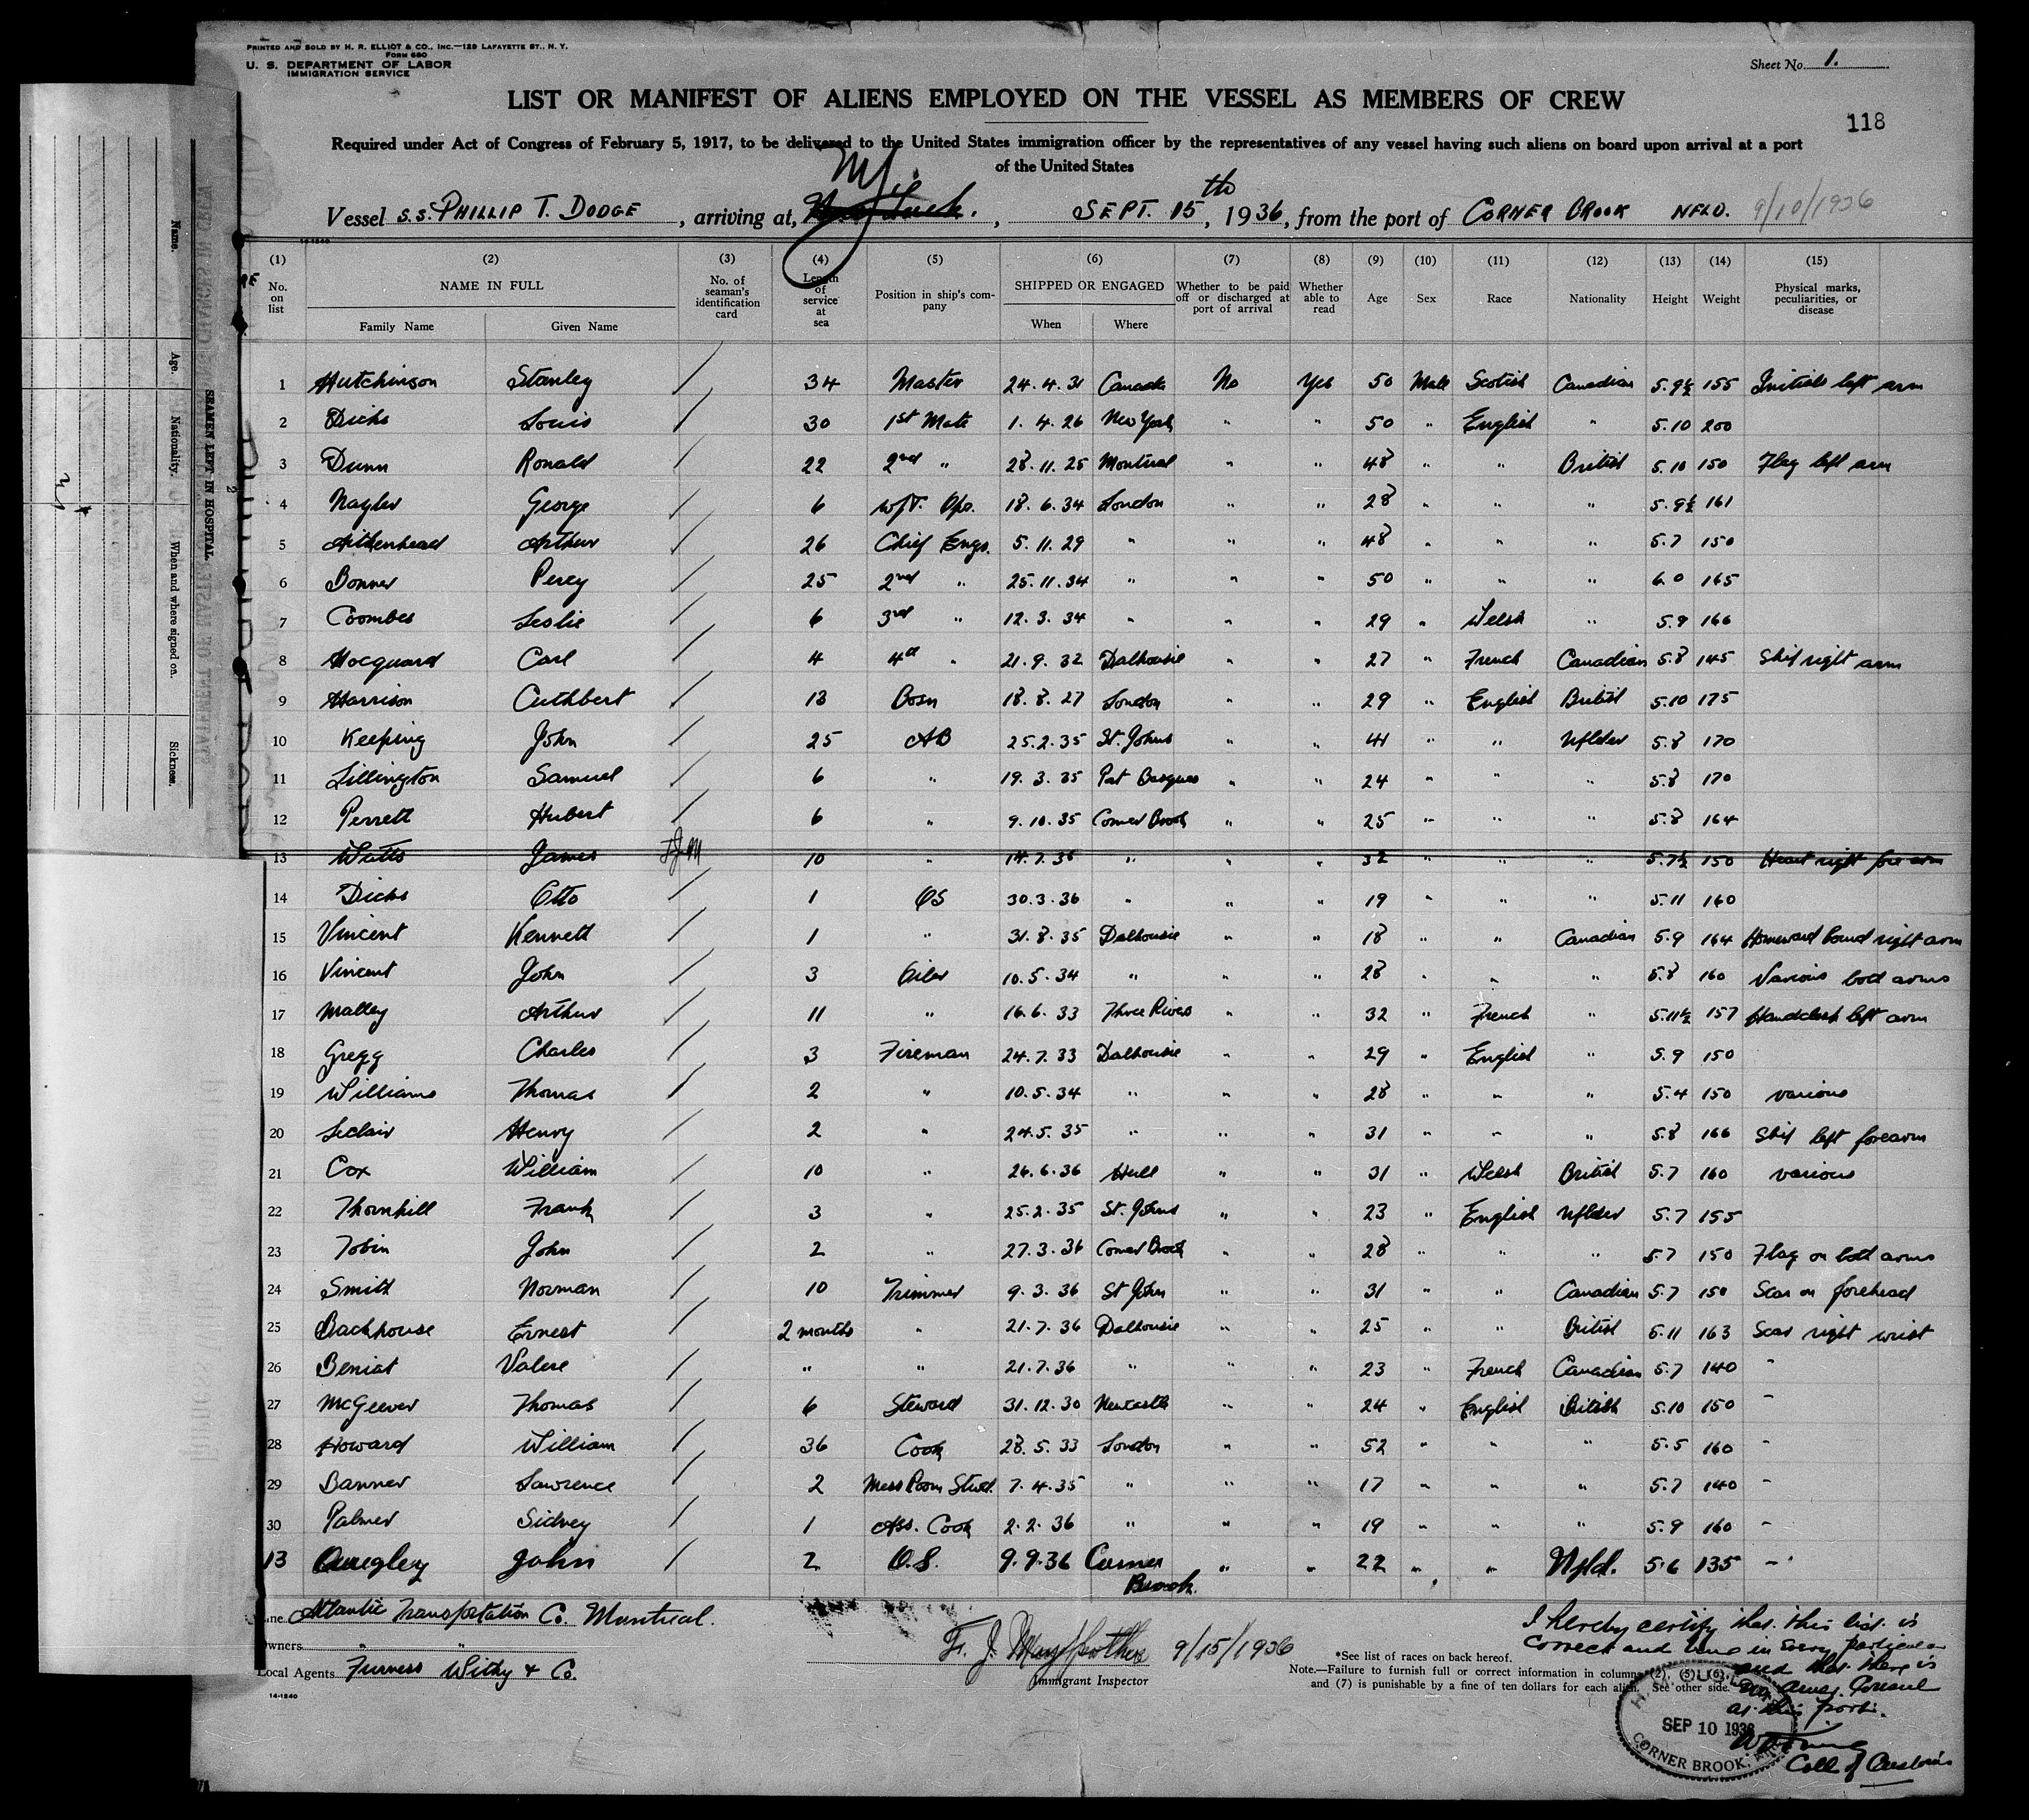 PRINTED AND SOLD BY H. R. ELLIOT & CO., INC.—129 LAFAYETTE ST., N. Y.
FORM 680
U. S. DEPARTMENT OF LABOR
IMMIGRATION SERVICE
Sheet No. 1.
LIST OR MANIFEST OF ALIENS EMPLOYED ON THE VESSEL AS MEMBERS OF CREW
118
Required under Act of Congress of February 5, 1917, to be delivered to the United States immigration officer by the representatives of any vessel having such aliens on board upon arrival at a port
of the United States
Vessel S.S. PHILLIP T. DODGE, arriving at, NY. SEPT. 15th, 1936, from the port of CORNER BROOK NFLD. 9/10/1936
14-1240
(1) (2) (3) (4) (5) (6) (7) (8) (9) (10) (11) (12) (13) (14) (15)
No. on list NAME IN FULL Family Name Given Name No. of seaman's identification card Length of service at sea Position in ship's company SHIPPED OR ENGAGED When Where Whether to be paid off or discharged at port of arrival Whether able to read Age Sex Race Nationality Height Weight Physical marks, peculiarities, or disease
1 Hutchinson Stanley / 34 Master 24.4.31 Canada No Yes 50 Male Scotish Canadian 5.9½ 155 Initials left arm
2 Dicks Louis / 30 1st Mate 1.4.26 New York " " 50 " English " 5.10 200
3 Dunn Ronald / 22 2nd " 28.11.25 Montreal " " 48 " " British 5.10 150 Flag left arm
4 Nayler George / 6 W/T. Opr. 18.6.34 London " " 28 " " " 5.9½ 161
5 Aitkenhead Arthur / 26 Chief Engr. 5.11.29 " " " 48 " " " 5.7 150
6 Bonner Percy / 25 2nd " 25.11.34 " " " 50 " " " 6.0 165
7 Coombes Leslie / 6 3rd " 12.3.34 " " " 29 " Welsh " 5.9 166
8 Hocquard Carl / 4 4th " 21.9.32 Dalhousie " " 27 " French Canadian 5.8 145 Ship right arm
9 Harrison Cuthbert / 13 Bosn 18.8.27 London " " 29 " English British 5.10 175
10 Keeping John / 25 AB 25.2.35 St. Johns " " 41 " " Nflder 5.8 170
11 Lillington Samuel / 6 " 19.3.35 Port Basques " " 24 " " " 5.8 170
12 Perrett Hubert / 6 " 9.10.35 Corner Brook " " 25 " " " 5.8 164
13 Watts James FJM 10 " 14.7.36 " " " 32 " " " 5.7½ 150 Heart right fore arm
14 Dicks Otto / 1 OS 30.3.36 " " " 19 " " " 5.11 160
15 Vincent Kennett / 1 " 31.8.35 Dalhousie " " 18 " " Canadian 5.9 164 Homeward bound right arm
16 Vincent John / 3 Oiler 10.5.34 " " " 28 " " " 5.8 160 Various both arms
17 Malley Arthur / 11 " 16.6.33 Three Rivers " " 32 " French " 5.11½ 157 Handclasp left arm
18 Gregg Charles / 3 Fireman 24.7.33 Dalhousie " " 29 " English " 5.9 150
19 Williams Thomas / 2 " 10.5.34 " " " 28 " " " 5.4 150 various
20 Leclair Henry / 2 " 24.5.35 " " " 31 " " " 5.8 166 Ship left forearm
21 Cox William / 10 " 26.6.36 Hull " " 31 " Welsh British 5.7 160 various
22 Thornhill Frank / 3 " 25.2.35 St. Johns " " 23 " English Nflder 5.7 155
23 Tobin John / 2 " 27.3.36 Corner Brook " " 28 " " " 5.7 150 Flag on both arms
24 Smith Norman / 10 Trimmer 9.3.36 St John " " 31 " " Canadian 5.7 150 Scar on forehead
25 Backhouse Ernest / 2 months " 21.7.36 Dalhousie " " 25 " " British 5.11 163 Scar right wrist
26 Beniat Valere / " " 21.7.36 " " " 23 " French Canadian 5.7 140 -
27 McGeever Thomas / 6 Steward 31.12.30 Newcastle " " 24 " English British 5.10 150 -
28 Howard William / 36 Cook 28.5.33 London " " 52 " " " 5.5 160 -
29 Banner Lawrence / 2 Mess Room Stwd. 7.4.35 " " " 17 " " " 5.7 140 -
30 Palmer Sidney / 1 Ass. Cook 2.2.36 " " " 19 " " " 5.9 160 -
13 Quegley John / 2 O.S. 9.9.36 Corner Brook. " " 22 " " Nfld. 5.6 135 -
Line Atlantic Transportation Co. Montreal.
Owners " "
Local Agents Furness Withy & Co.
14-1240
9/15/1936
Immigrant Inspector
*See list of races on back hereof.
Note.—Failure to furnish full or correct information in columns (2), (5), (6),
and (7) is punishable by a fine of ten dollars for each alien. See other side.
I hereby certify that this list is
correct and true in every particular
and that there is
no Amer. Consul
at this port.
Coll of Customs
SEP 10 1936
CORNER BROOK.
SEAMEN LEFT IN HOSPITAL
Name.
Age.
Nationality.
When and where signed on.
Sickness.